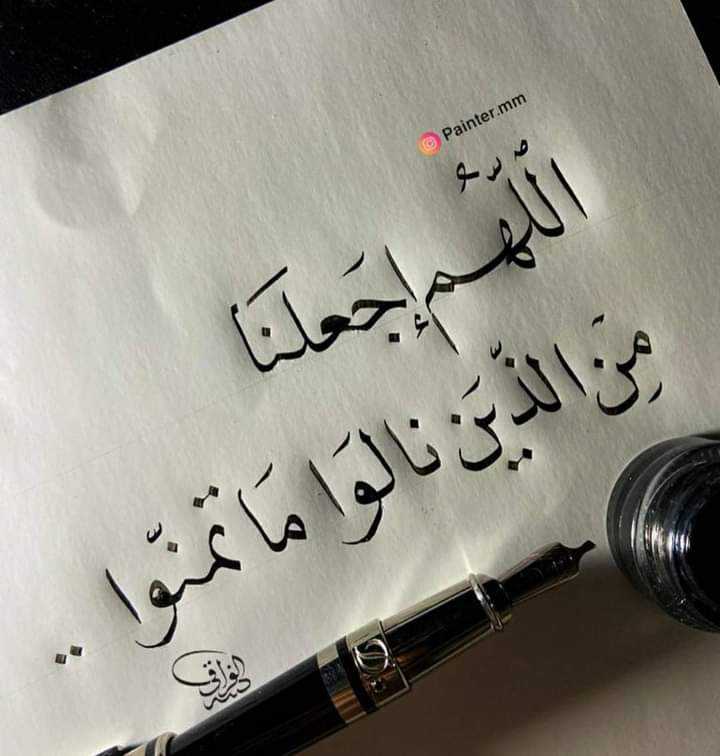 Painter.mm
اللّٰهُم إجعلنَا
مِنَ الذّينَ نالوَا مَا تمنوّا ..